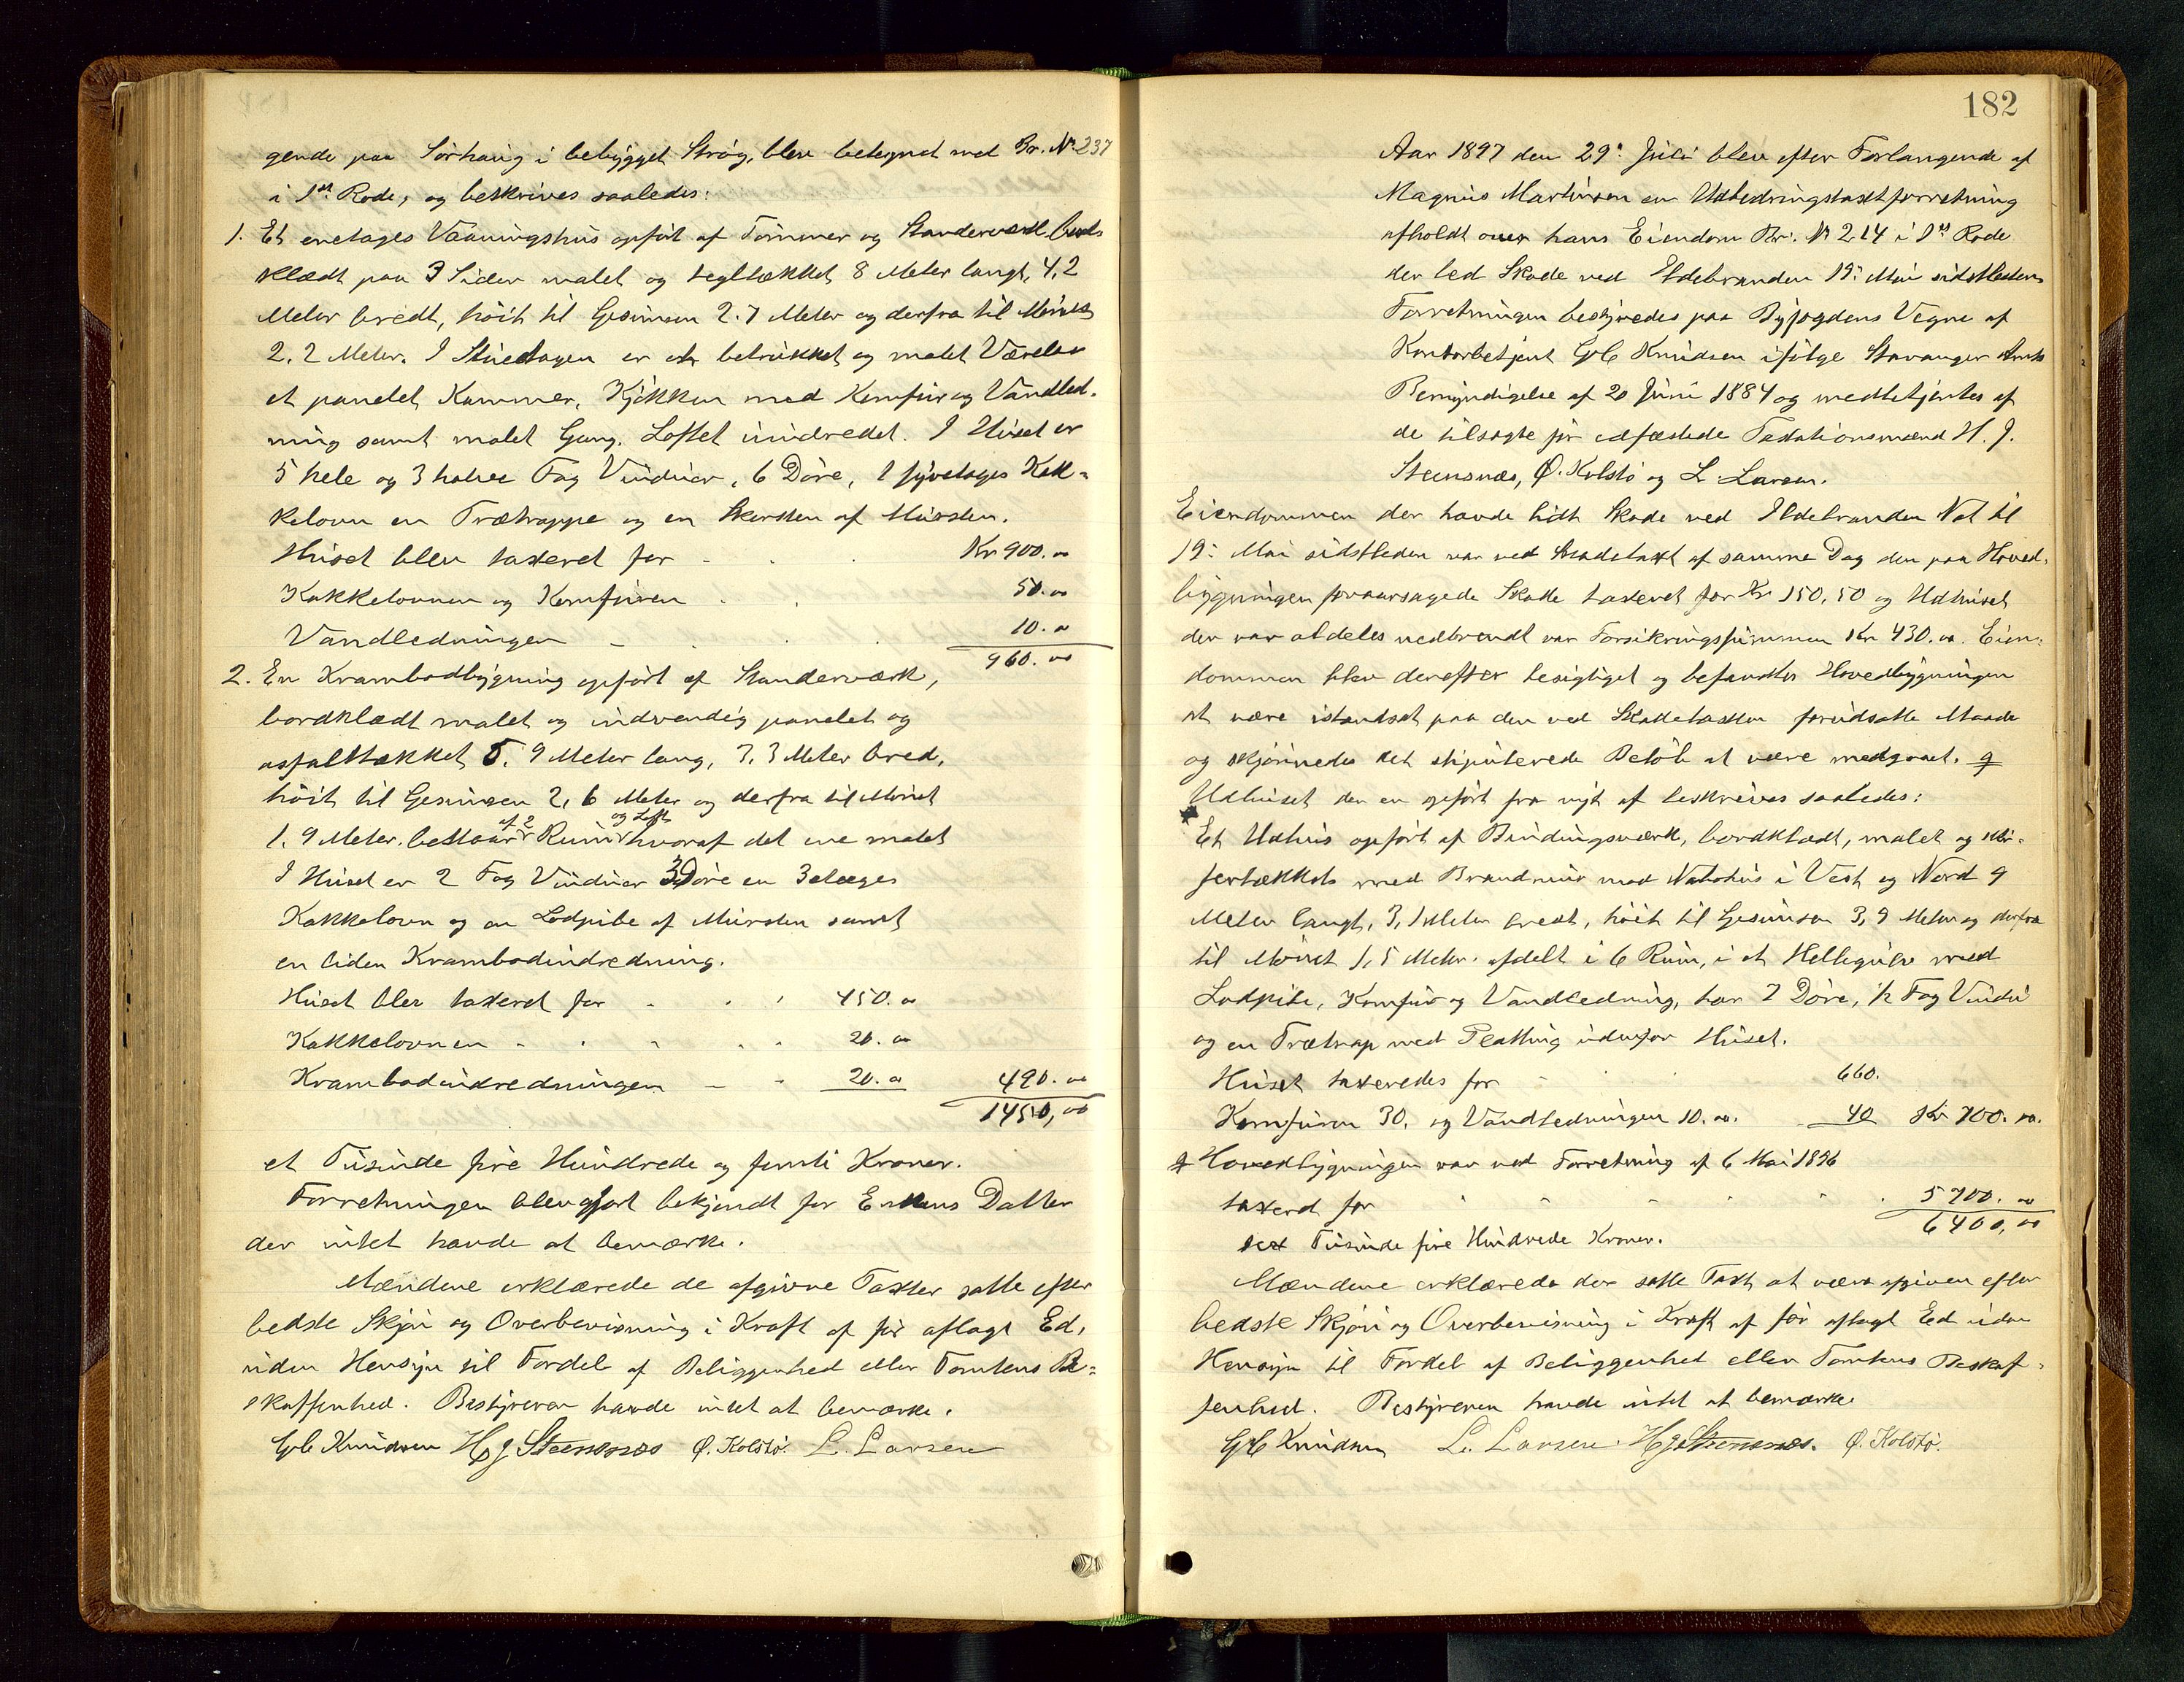 gende paa Sørhaug i bebygget Strøg, blev betegnet med Br. No 237
i 1st Rode, og beskrives saaledes:
1. Et enetages Vaaningshus opført af Tømmer og Standerværk bord-
klædt paa 3 Sider malet og tegltækket 8 Meter langt, 4,2
Meter bredt, høit til Gesimsen 2.7 Meter og derfra til Mønet
2.2 Meter. I Stueetagen er et betrukket og malet Værelse
et panelet Kammer, Kjøkken med Komfur og Vandled-
ning samt malet Gang. Loftet uindredet. I Huset er
5 hele og 3 halve Fag Vinduer, 6 Døre, 1 fyretages Kak-
kelovn en Trætrappe og en Skorsten af Mursten.
Huset blev taxeret for Kr 900.00
Kakkelovnen og Komfuren 50.00
Vandledningen 10.00
960.00
2. En Krambodbygning opført af Standerværk,
bordklædt malet og indvendig panelet og
asfalttækket 5.9 Meter lang, 3,3 Meter bred,
høit til Gesimsen 2,6 Meter og derfra til Mønet
1.9 Meter. bestaar af 2 Rum og Loft hvoraf det ene malet
I Huset er 2 Fag Vinduer 3 Døre en 3 etages
Kakkelovn og en Lodpibe af Mursten samt
en liden Krambodindredning.
Huset blev taxeret for 450.00
Kakkelovnen 20.00
Krambodindredningen 20.00 490.00
1450,00
et Tusinde fire Hundrede og femti Kroner.
Forretningen blev gjort bekjendt for Enkens Datter
der intet havde at bemærke.
Mændene erklærede de afgivne Taxter satte efter
bedste Skjøn og Overbevisning i Kraft af før aflagt Ed,
uden Hensyn til Fordel af Beliggenhed eller Tomtens Be-
skaffenhed. Bestyreren havde intet at bemærke.
GC Knudsen HJ Steensnæs Ø. Kolstø. L. Larsen
182
Aar 1897 den 29: Juli blev efter Forlangende af
Magnus Martinsen en Udbedringstaxtforretning
afholdt over hans Eiendom Br. No 214 i 1st Rode
der led Skade ved Ildebranden 19: Mai sidstleden
Forretningen bestyredes paa Byfogdens Vegne af
Kontorbetjent GC Knudsen ifølge Stavanger Amts
Bemyndigelse af 20 Juni 1884 og medbetjentes af
de tilsagte før edfæstede Taxationsmænd H. J.
Steensnæs, Ø. Kolstø og L. Larsen.
Eiendommen der havde lidt Skade ved Ildebranden Nat til
19: Mai sidstleden var ved Skadetaxt af samme Dag den paa Hoved-
bygningen foraarsagede Skade taxeret for Kr 150,50 og Udhuset
der var aldeles nedbrendt var Forsikringssummen Kr 430.00. Eien-
dommen blev derefter besigtiget og befandtes Hovedbygningen
at være istandsat paa den ved Skadetaxten forudsatte Maade
og skjønnedes det stipulerede Beløb at være medgaaet.
Udhuset der er opført fra nyt af beskrives saaledes:
Et Udhus opført af Bindingsværk, bordklædt, malet og ski-
fertækket med Brandmur mod Nabohus i Vest og Nord 9
Meter langt, 3,1 Meter bredt, høit til Gesimsen 3,9 Meter og derfra
til Mønet 1,5 Meter. afdelt i 6 Rum, i et Hellegulv med
Lodpibe, Komfur og Vandledning, har 7 Døre, 1/2 Fag Vindu
og en Trætrap med Platting udenfor Huset.
Huset taxeredes for 660.
Komfuren 30. og Vandledningen 10.00. 40 Kr 700.00.
Hovedbygningen var ved Forretning af 6 Mai 1896
taxerd for 5700.00
6400,00
sex Tusinde fire Hundrede Kroner.
Mændene erklærede den satte Taxt at være afgiven efter
bedste Skjøn og Overbevisning i Kraft af før aflagt Ed uden
Hensyn til Fordel af Beliggenhet eller Tomtens Beskaf-
fenhed. Bestyreren havde intet at bemærke
GC Knudsen L. Larsen. HJ Steensnæs. Ø. Kolstø.